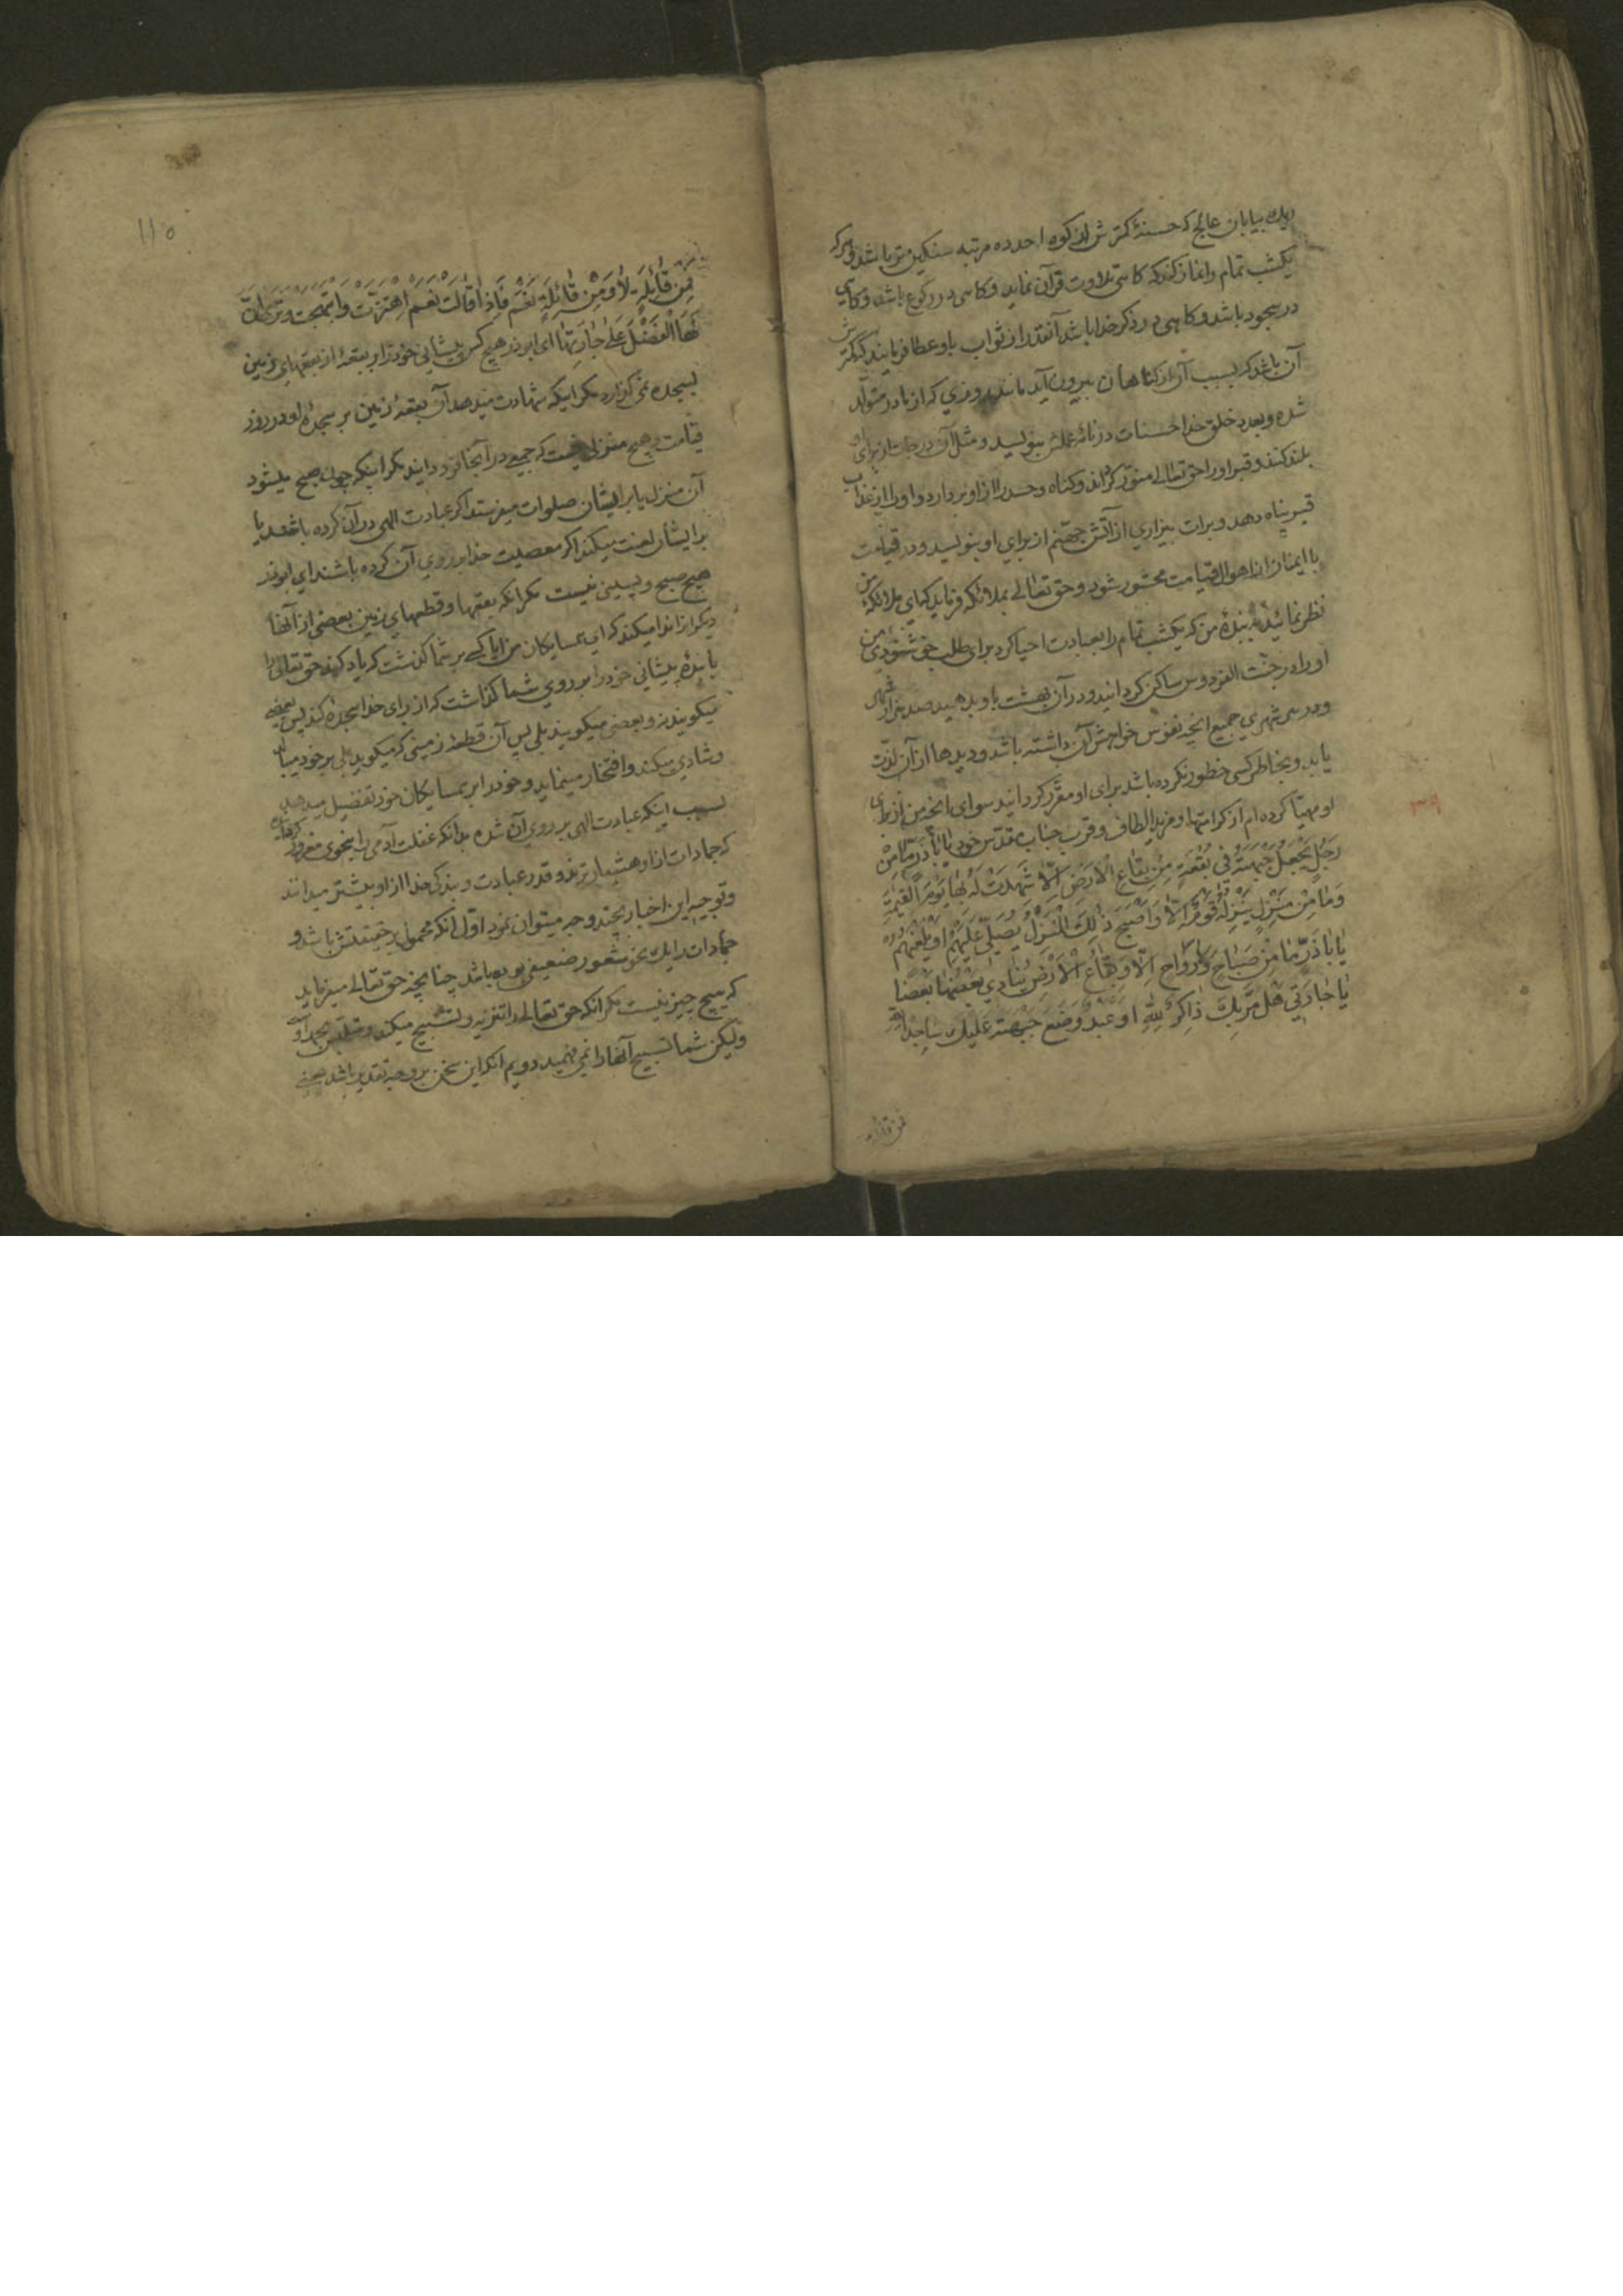 ریك بیابان عالج که حسنهٔ کمترش از کوه احد ده مرتبه سنکین تر باشد و هر که
یکشب تمام را نماز کند که کاهی تلاوت قرآن نماید و کاهی در رکوع باشد و کاهی
در سجود باشد و کاهی در ذکر خدا باشد آنقدر از ثواب باو عطا فرمایند که کمترش
آن باشد که بسبب آن از کناهان بیرون آید مانند روزی که از مادر متولّد
شده و بعدد خلق خدا حسنات در نامهٔ عملش بنویسید و مثل آن درجات از برای او
بلند کنند و قبر او را حق تعالی منوّر کرداند و کناه و حسد را از او بردارد و او را از عذاب
قبر پناه دهد و برات بیزاری از آتش جهنّم از برای او بنویسد و در قیامت
با ایمنان از اهوال قیامت محشور شود و حق تعالی بملائکه فرماید که ای ملائکهٔ من
نظر نمائید به بندهٔ من که یکشب تمام را بعبادت احیا کرد برای طلب خوشنودی من
او را در جنّت الفردوس ساکن کردانید و در آن بهشت باو بدهید صد هزار شهر که
و در هر شهری جمیع آنچه نفوس خواهش آن داشته باشد و دیدها از آن لذّت
یابد و بخاطر کسی خطور نکرده باشد برای او مقرّر کردانید سوای آنچه من از برای
او مهیّا کرده ام از کرامتها و مزید الطاف و قرب جناب مقدّس خود یٰا أَبٰاذَرٍّ مٰا مِنْ
رَجُلٍ یَجْعَلُ جَبْهَتَهُ فی بُقْعَةٍ مِنْ بِقٰاعِ الْاَرْضِ اِلّٰا شَهِدَتْ لَهُ بِهٰا یَوْمَ الْقِیٰمَةِ
وَمٰا مِنْ مَنْزِلٍ یَنْزِلُهُ قَوْمٌ اِلّٰا وَ اَصْبَحَ ذٰلِكَ الْمَنْزِلُ یُصَلّی عَلَیْهِمْ اَوْ یَلْعَنُهُمْ
یٰا بٰا ذَرٍّ مٰا مِنْ صَبٰاحٍ وَلٰا رَوٰاحٍ اِلّٰا وَبِقٰاعُ الْاَرْضِ یُنٰادی بَعْضُهٰا بَعْضًا
یٰا جٰارَتی هَلْ مَرَّ بِكَ ذٰاکِرٌ لِلّٰهِ اَوْ عَبْدٌ وَضَعَ جَبْهَتَهُ عَلَیْكِ سٰاجِدًا لِلّٰهِ
فمن قائلة
١١٥
فَمِنْ قٰائِلَةٍ لٰا وَ مِنْ قٰائِلَةٍ نَعَمْ فَاِذٰا قٰالَتْ نَعَمْ اِهْتَزَّتْ وَ ابْتَهَجَتْ وَ تَرٰی اَنَّ
لَهَا الْفَضْلَ عَلٰی جٰارَتِهٰا ای ابوذر هیچ کس پیشانی خود را بر بقعهٔ از بقعهای زمین
بسجده نمی کذارد مکر اینکه شهادت میدهد آن بقعهٔ زمین بر سجدهٔ او در روز
قیامت و هیچ منزلی نیست که جمعی در آنجا فرود آیند مکر اینکه چون صبح میشود
آن منزل یا بر ایشان صلوات میفرستد اکر عبادت الهی در آن کرده باشند یا
بر ایشان لعنت میکند اکر معصیت خدا بر روی آن کرده باشند ای ابوذر
هیچ صبح و پسینی نیست مکر آنکه بقعها و قطعهای زمین بعضی از آنها
دیکر از ندا میکند که ای همسایکان من آیا کسی بر شما کذشت که یاد کند حق تعالی را
یا بندهٔ پیشانی خود را بر روی شما کذاشت که از برای خدا سجده کند پس بعضی
میکویند نه و بعضی میکویند بلی پس آن قطعهٔ زمینی که میکوید بلی بر خود میبالد
و شادی میکند و افتخار مینماید و خود را بر همسایکان خود تفضیل میدهد
بسبب اینکه عبادت الهی بر روی آن شده بدانکه غفلت آدمی را بنحوی مغرور کردانیده
که جمادات از او هشیارترند و قدر عبادت و بندکی خدا را از او بیشتر میدانند
و توجیه این اخبار بچند وجه میتوان نمود اوّل آنکه محمول بر حقیقتش باشد و
جمادات را یك نحو شعور ضعیفی بوده باشد چنانچه حق تعالی میفرماید
که هیچ چیز نیست مکر آنکه حق تعالی را تنزیه و تسبیح میکند متلبّس بحمد او
ولیکن شما تسبیح آنها را نمی فهمید دویم آنکه این سخن بر وجه تقدیر باشد یعنی